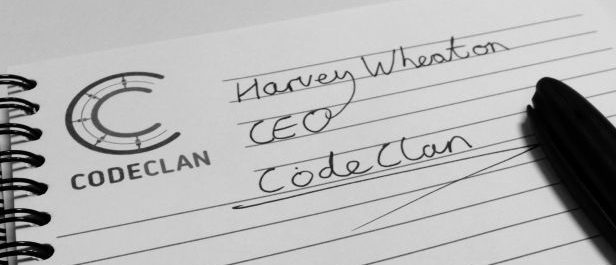 CODECLAN
Harvey Wheaton
CEO
CodeClan